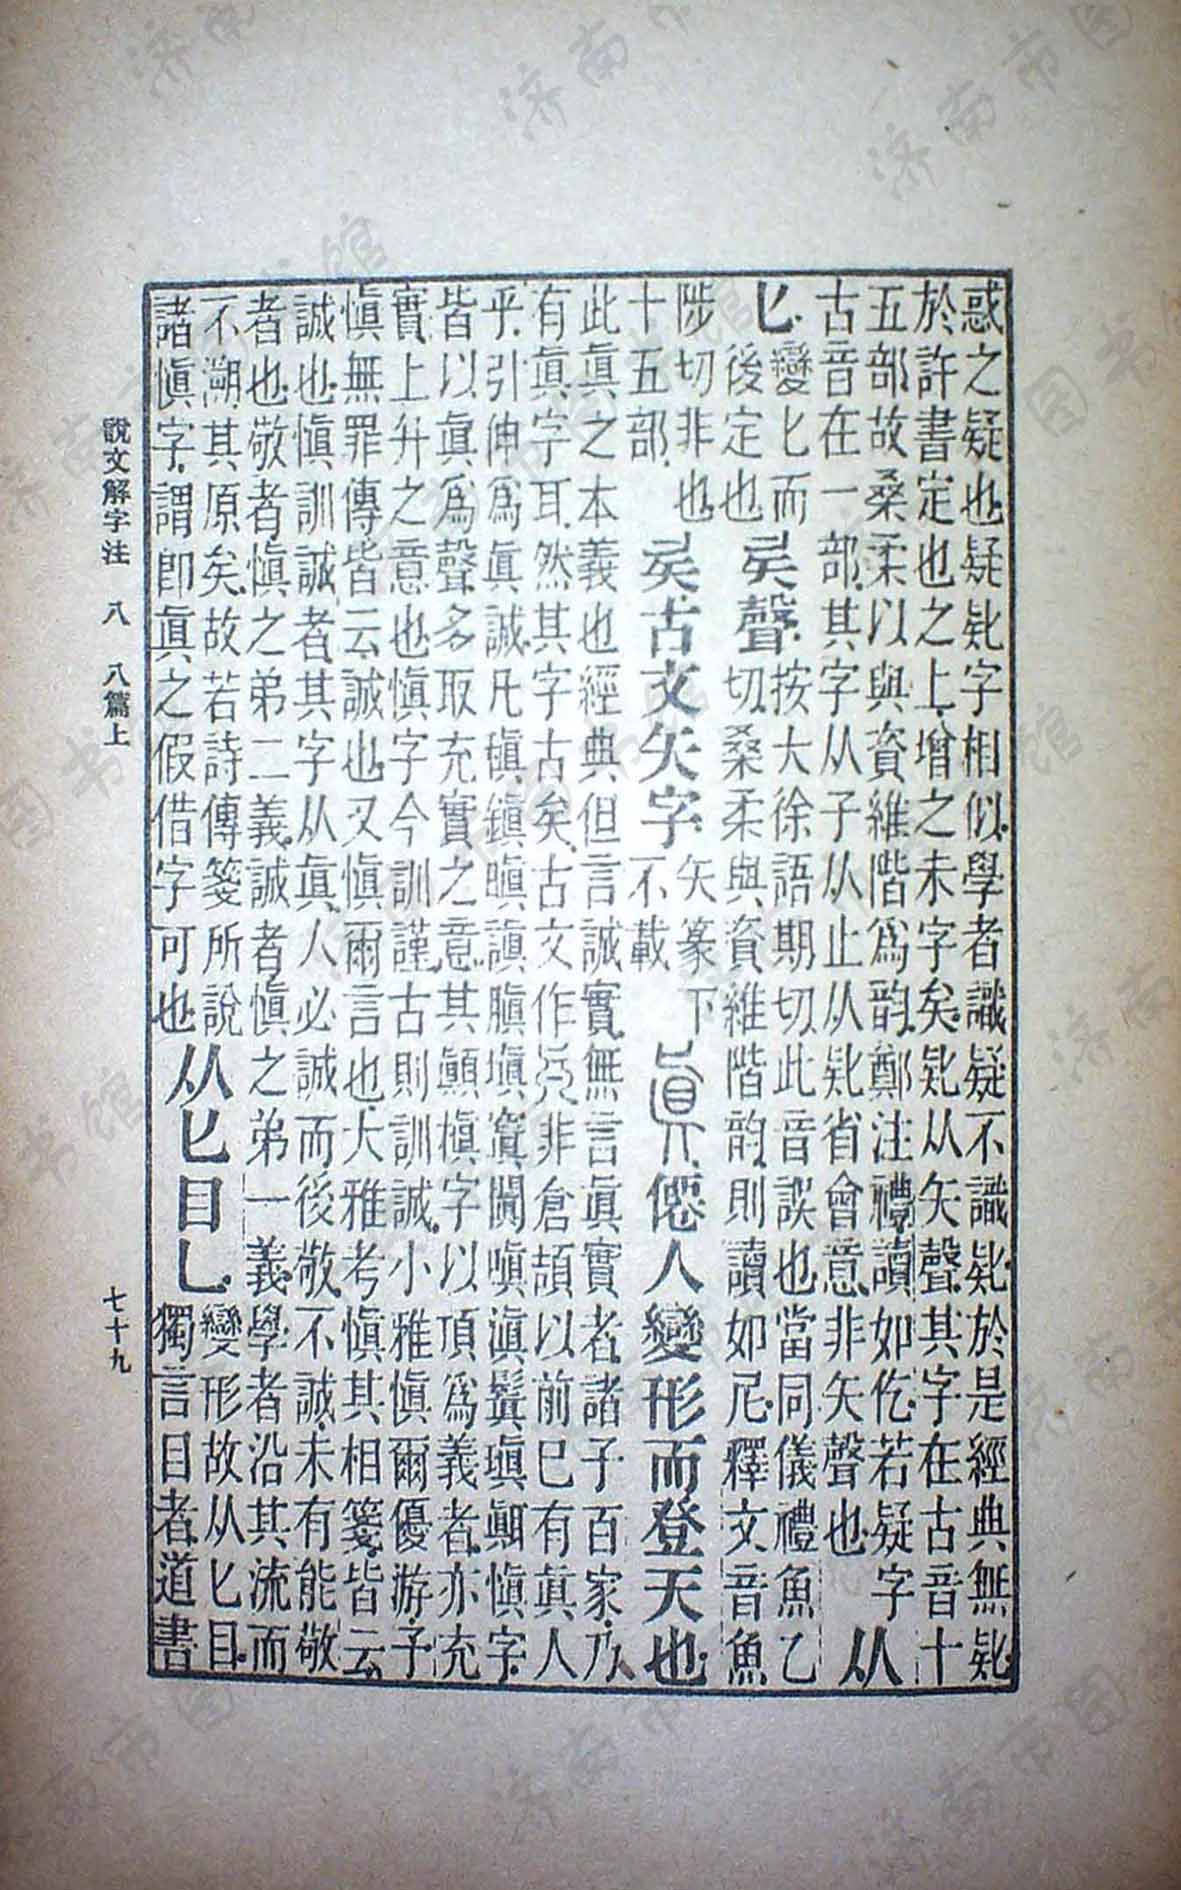 惑之疑也疑𠤗字相似學者識疑不識𠤗於是經典無𠤗
於許書定也之上增之未字矣𠤗从矢聲其字在古音十
五部故桑柔以與資維階爲韵鄭注禮讀如仡若疑字
古音在一部其字从子从止从𠤗省會意非矢聲也
从
匕
變匕而
後定也
𠤕聲
按大徐語期切此音誤也當同儀禮魚乙
切桑柔與資維階韵則讀如尼釋文音魚
陟切非也
十五部
𠤕古文矢字
矢篆下
不載
眞
僊人變形而登天也
此眞之本義也經典但言誠實無言眞實者諸子百家乃
有眞字耳然其字古矣古文作𠑿非倉頡以前已有眞人
乎引伸爲眞誠凡稹鎭瞋謓䐜塡窴闐嗔滇鬒瑱顚愼字
皆以眞爲聲多取充實之意其顚槇字以頂爲義者亦充
實上升之意也愼字今訓謹古則訓誠小雅愼爾優游予
愼無罪傳皆云誠也又愼爾言也大雅考愼其相箋皆云
誠也愼訓誠者其字从眞人必誠而後敬不誠未有能敬
者也敬者愼之弟二義誠者愼之弟一義學者沿其流而
不溯其原矣故若詩傳箋所說
諸愼字謂卽眞之假借字可也
从匕目乚
變形故从匕目
獨言目者道書
說文解字注 八 八篇上
七十九
济南市图书馆